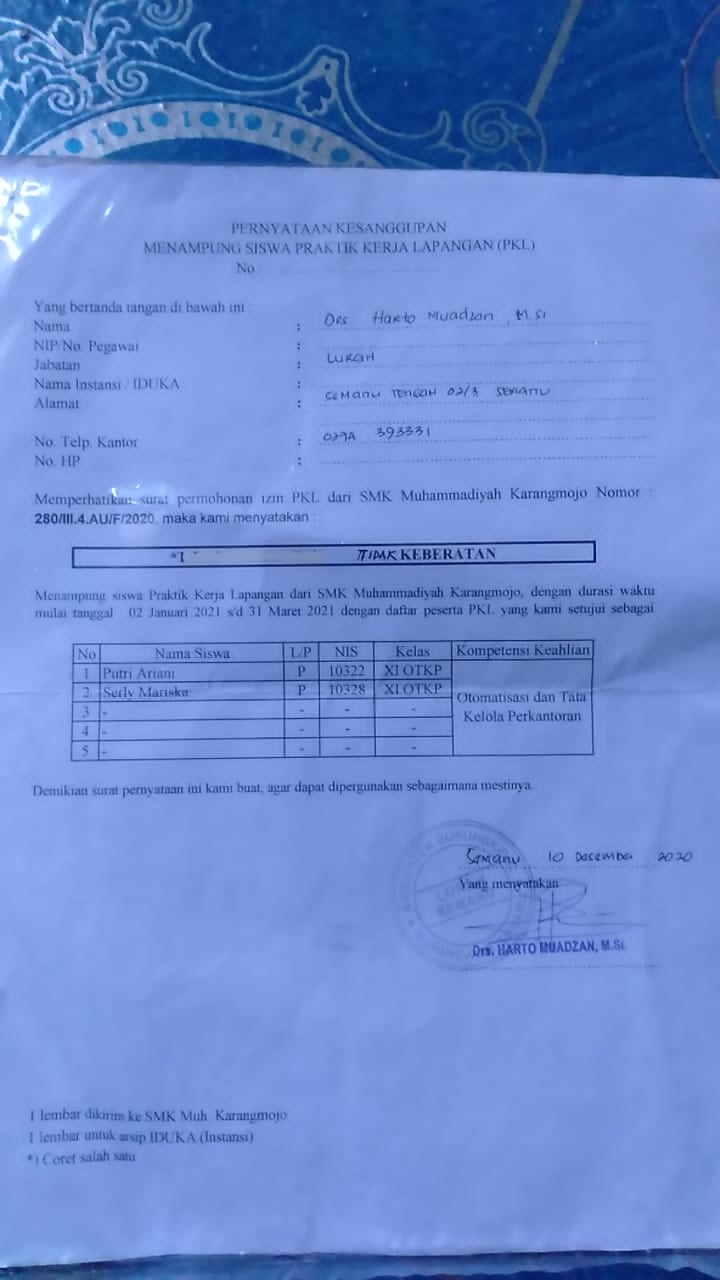 PERNYATAAN KESANGGUPAN
MENAMPUNG SISWA PRAKTIK KERJA LAPANGAN (PKL)
No
Yang bertanda tangan di bawah ini :
Nama : Drs Harto Muadzan, M.Si
NIP/No. Pegawai :
Jabatan : LURAH
Nama Instansi / IDUKA :
Alamat : SEMANU TENGAH 02/3 SEMANU
No. Telp. Kantor : 0274 393331
No. HP :
Memperhatikan surat permohonan izin PKL dari SMK Muhammadiyah Karangmojo Nomor :
280/III.4.AU/F/2020, maka kami menyatakan :
TIDAK KEBERATAN
Menampung siswa Praktik Kerja Lapangan dari SMK Muhammadiyah Karangmojo, dengan durasi waktu
mulai tanggal 02 Januari 2021 s/d 31 Maret 2021 dengan daftar peserta PKL yang kami setujui sebagai
No Nama Siswa L/P NIS Kelas Kompetensi Keahlian
1 Putri Ariani P 10322 XI OTKP
2 Serly Mariska P 10328 XI OTKP
Otomatisasi dan Tata
Kelola Perkantoran
3 - - - -
4 - - - -
5 - - - -
Demikian surat pernyataan ini kami buat, agar dapat dipergunakan sebagaimana mestinya.
Semanu 10 Desember 2020
Yang menyatakan
Drs. HARTO MUADZAN, M.Si.
1 lembar dikirim ke SMK Muh. Karangmojo
1 lembar untuk arsip IDUKA (Instansi)
*) Coret salah satu